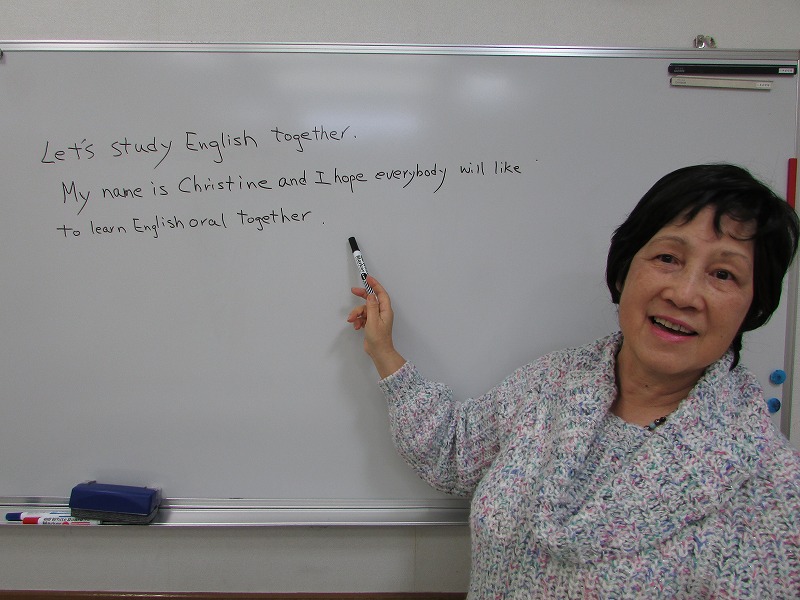 Let's study English together.
My name is Christine and I hope everybody will like
to learn English oral together.